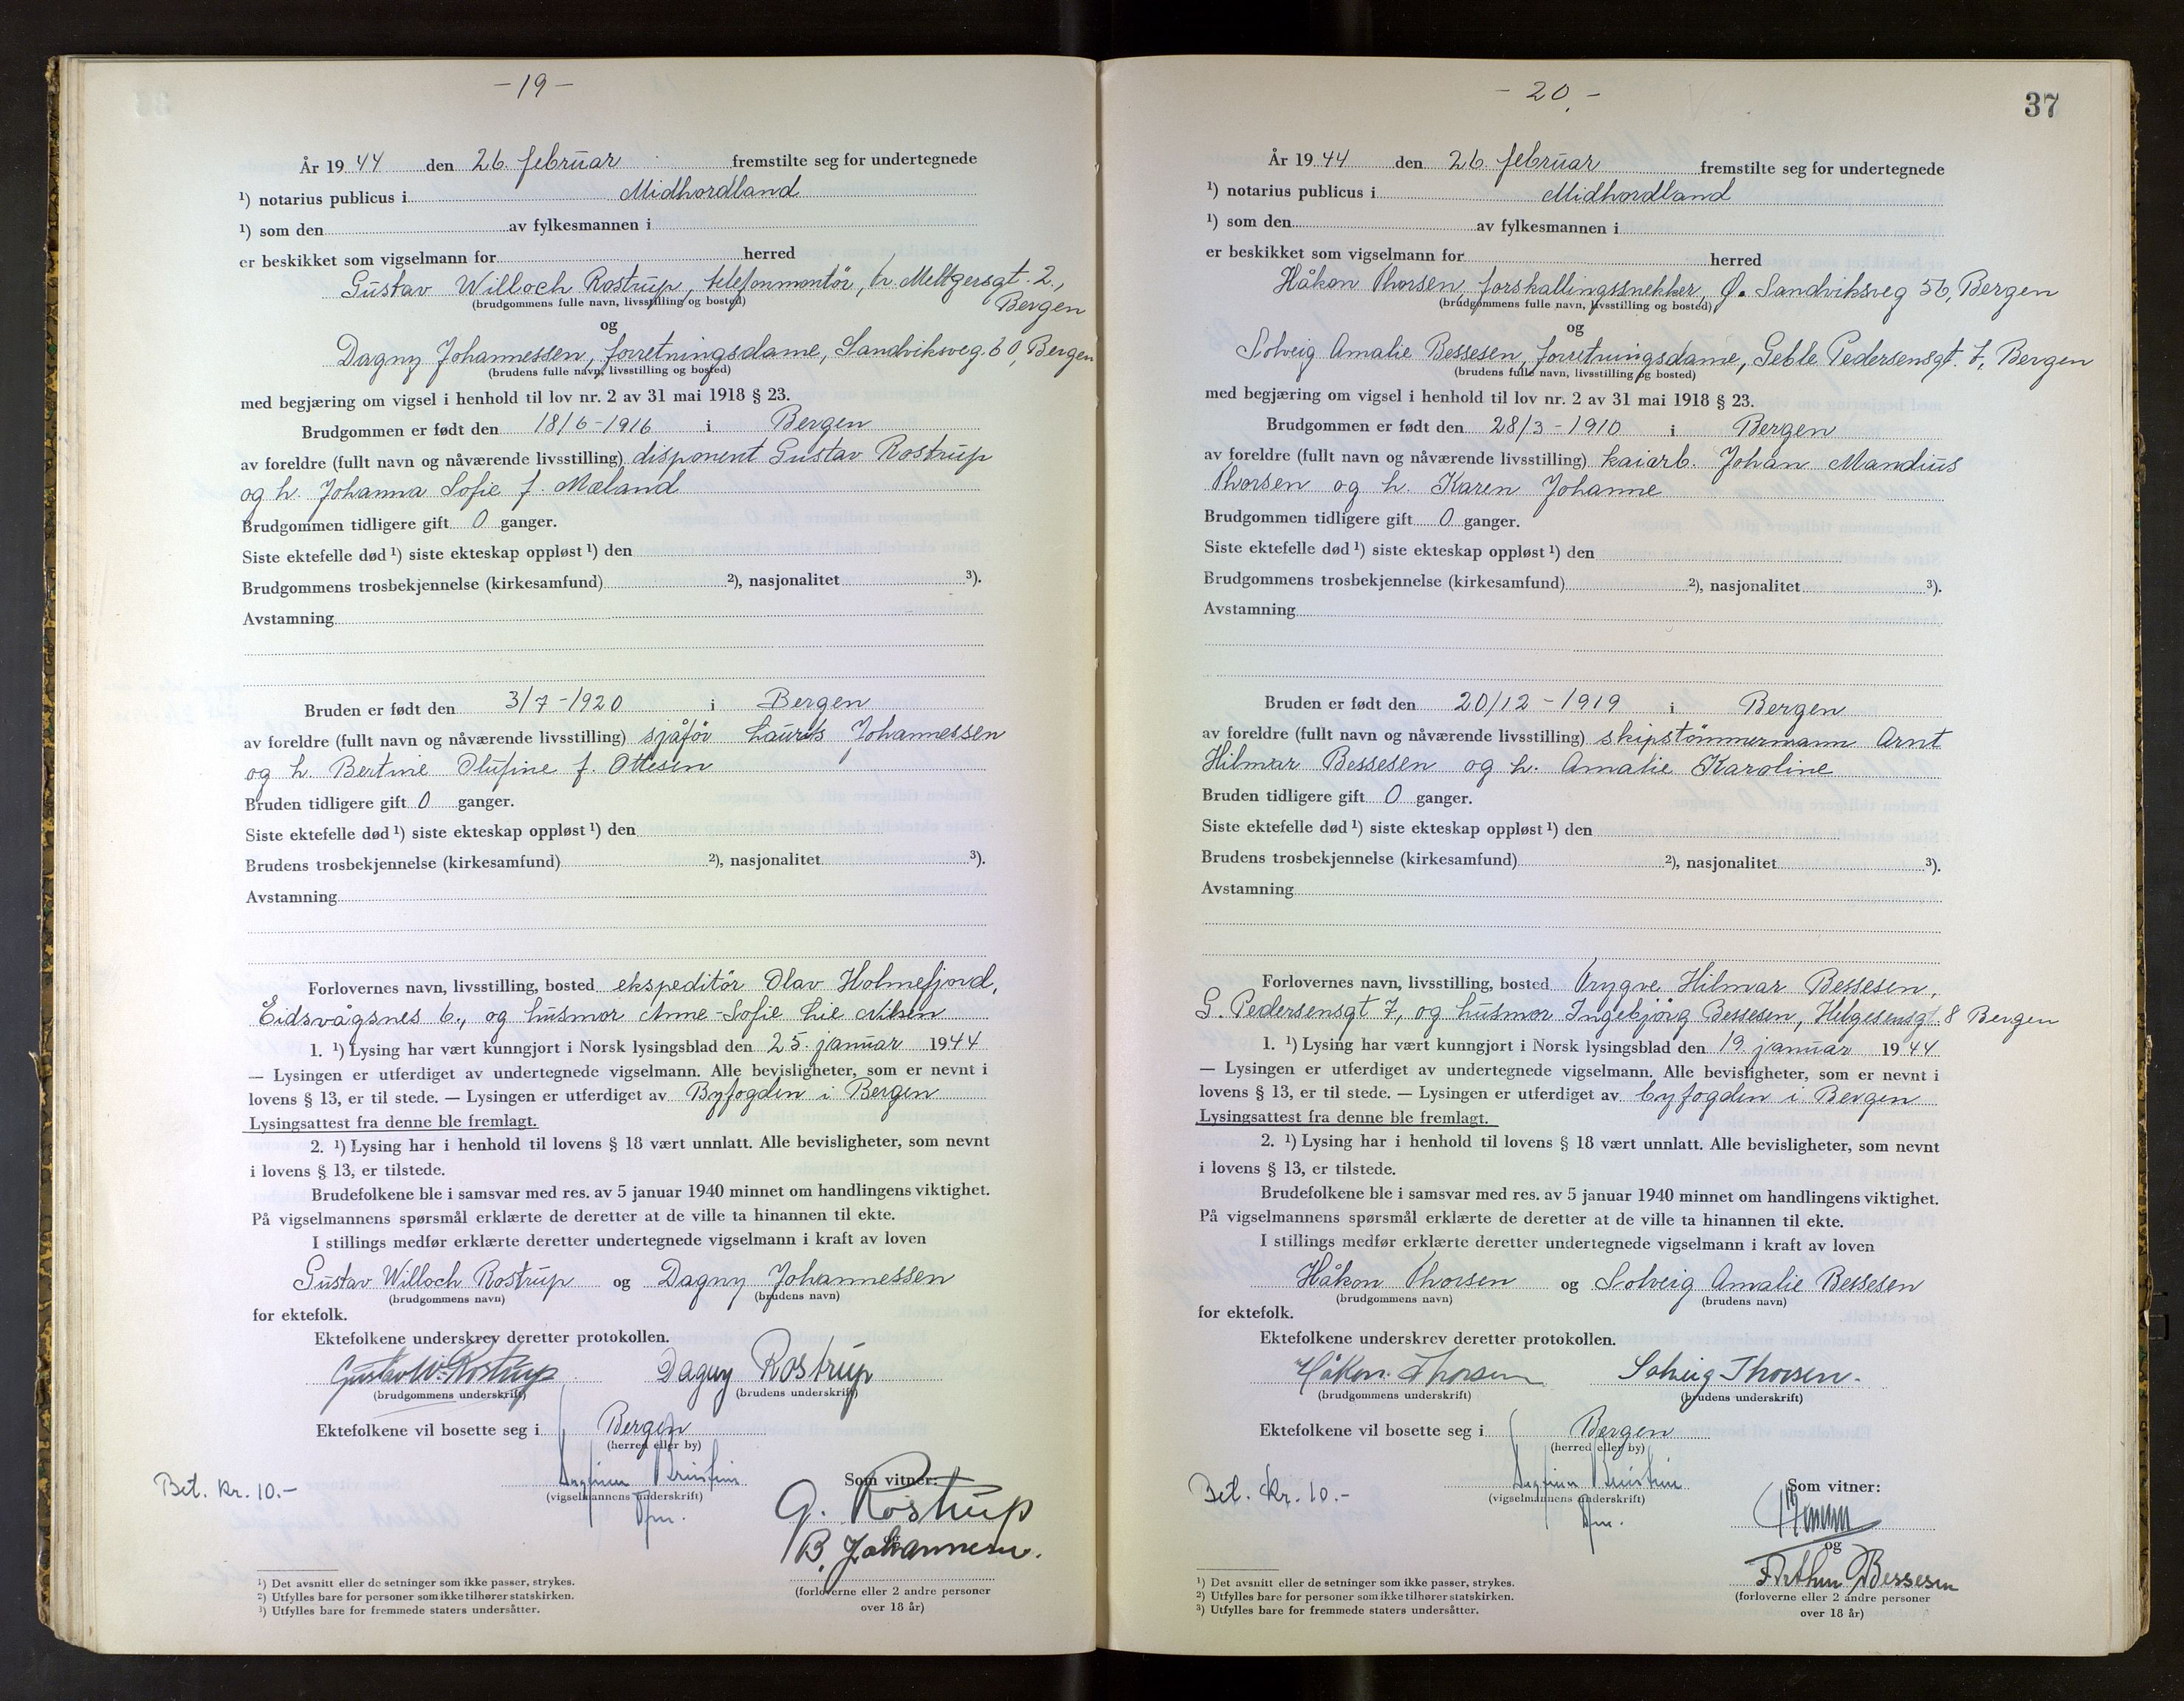 - 19 -
År 19 44 den 26. februar fremstilte seg for undertegnede
¹) notarius publicus i Midhordland
¹) som den av fylkesmannen i
er beskikket som vigselmann for herred
Gustav Willoch Rostrup, telefonmontör, h. Meltzersgt. 2,
(brudgommens fulle navn, livsstilling og bosted) Bergen
og
Dagny Johannessen, forretningsdame, Sandviksveg. 60, Bergen
(brudens fulle navn, livsstilling og bosted)
med begjæring om vigsel i henhold til lov nr. 2 av 31 mai 1918 § 23.
Brudgommen er født den 18/6 - 1916 i Bergen
av foreldre (fullt navn og nåværende livsstilling) disponent Gustav Rostrup
og h. Johanna Sofie f. Mæland
Brudgommen tidligere gift 0 ganger.
Siste ektefelle død ¹) siste ekteskap oppløst ¹) den
Brudgommens trosbekjennelse (kirkesamfund) ²), nasjonalitet ³).
Avstamning
Bruden er født den 3/7 - 1920 i Bergen
av foreldre (fullt navn og nåværende livsstilling) sjåför Laurits Johannessen
og h. Bertine Olufine f. Ottesen
Bruden tidligere gift 0 ganger.
Siste ektefelle død ¹) siste ekteskap oppløst ¹) den
Brudens trosbekjennelse (kirkesamfund) ²), nasjonalitet ³).
Avstamning
Forlovernes navn, livsstilling, bosted ekspeditör Olav Holmefjord,
Eidsvågsnes 6., og husmor Anne-Sofie Lie Nilsen
1. ¹) Lysing har vært kunngjort i Norsk lysingsblad den 25. januar 1944
— Lysingen er utferdiget av undertegnede vigselmann. Alle bevisligheter, som er nevnt i
lovens § 13, er til stede. — Lysingen er utferdiget av Byfogden i Bergen
Lysingsattest fra denne ble fremlagt.
2. ¹) Lysing har i henhold til lovens § 18 vært unnlatt. Alle bevisligheter, som nevnt
i lovens § 13, er tilstede.
Brudefolkene ble i samsvar med res. av 5 januar 1940 minnet om handlingens viktighet.
På vigselmannens spørsmål erklærte de deretter at de ville ta hinannen til ekte.
I stillings medfør erklærte deretter undertegnede vigselmann i kraft av loven
Gustav Willoch Rostrup og Dagny Johannessen
(brudgommens navn) (brudens navn)
for ektefolk.
Ektefolkene underskrev deretter protokollen.
Gustav W. Rostrup Dagny Rostrup
(brudgommens underskrift) (brudens underskrift)
Ektefolkene vil bosette seg i Bergen
(herred eller by)
Bet. kr. 10.- Som vitner:
(vigselmannens underskrift)
G. Rostrup
og
B. Johannessen.
(forloverne eller 2 andre personer
over 18 år)
¹) Det avsnitt eller de setninger som ikke passer, strykes.
²) Utfylles bare for personer som ikke tilhører statskirken.
³) Utfylles bare for fremmede staters undersåtter.
- 20. -
37
År 19 44 den 26. februar fremstilte seg for undertegnede
¹) notarius publicus i Midhordland
¹) som den av fylkesmannen i
er beskikket som vigselmann for herred
Håkon Thorsen forskallingssnekker, Ø. Sandviksveg 56, Bergen
(brudgommens fulle navn, livsstilling og bosted)
og
Solveig Amalie Bessesen, forretningsdame, Geble Pedersensgt. 7, Bergen
(brudens fulle navn, livsstilling og bosted)
med begjæring om vigsel i henhold til lov nr. 2 av 31 mai 1918 § 23.
Brudgommen er født den 28/3 - 1910 i Bergen
av foreldre (fullt navn og nåværende livsstilling) kaiarb. Johan Mandius
Thorsen og h. Karen Johanne
Brudgommen tidligere gift 0 ganger.
Siste ektefelle død ¹) siste ekteskap oppløst ¹) den
Brudgommens trosbekjennelse (kirkesamfund) ²), nasjonalitet ³).
Avstamning
Bruden er født den 20/12 - 1919 i Bergen
av foreldre (fullt navn og nåværende livsstilling) skipstömmermann Arnt
Hilmar Bessesen og h. Amalie Karoline
Bruden tidligere gift 0 ganger.
Siste ektefelle død ¹) siste ekteskap oppløst ¹) den
Brudens trosbekjennelse (kirkesamfund) ²), nasjonalitet ³).
Avstamning
Forlovernes navn, livsstilling, bosted Trygve Hilmar Bessesen,
G. Pedersensgt 7, og husmor Ingebjörg Bessesen, Helgesensgt. 8 Bergen
1. ¹) Lysing har vært kunngjort i Norsk lysingsblad den 19. januar 1944
— Lysingen er utferdiget av undertegnede vigselmann. Alle bevisligheter, som er nevnt i
lovens § 13, er til stede. — Lysingen er utferdiget av byfogden i Bergen
Lysingsattest fra denne ble fremlagt.
2. ¹) Lysing har i henhold til lovens § 18 vært unnlatt. Alle bevisligheter, som nevnt
i lovens § 13, er tilstede.
Brudefolkene ble i samsvar med res. av 5 januar 1940 minnet om handlingens viktighet.
På vigselmannens spørsmål erklærte de deretter at de ville ta hinannen til ekte.
I stillings medfør erklærte deretter undertegnede vigselmann i kraft av loven
Håkon Thorsen og Solveig Amalie Bessesen
(brudgommens navn) (brudens navn)
for ektefolk.
Ektefolkene underskrev deretter protokollen.
Håkon Thorsen Solveig Thorsen.
(brudgommens underskrift) (brudens underskrift)
Ektefolkene vil bosette seg i Bergen
(herred eller by)
Bet. kr. 10.- Som vitner:
(vigselmannens underskrift)
og
Arthur Bessesen
(forloverne eller 2 andre personer
over 18 år)
¹) Det avsnitt eller de setninger som ikke passer, strykes.
²) Utfylles bare for personer som ikke tilhører statskirken.
³) Utfylles bare for fremmede staters undersåtter.